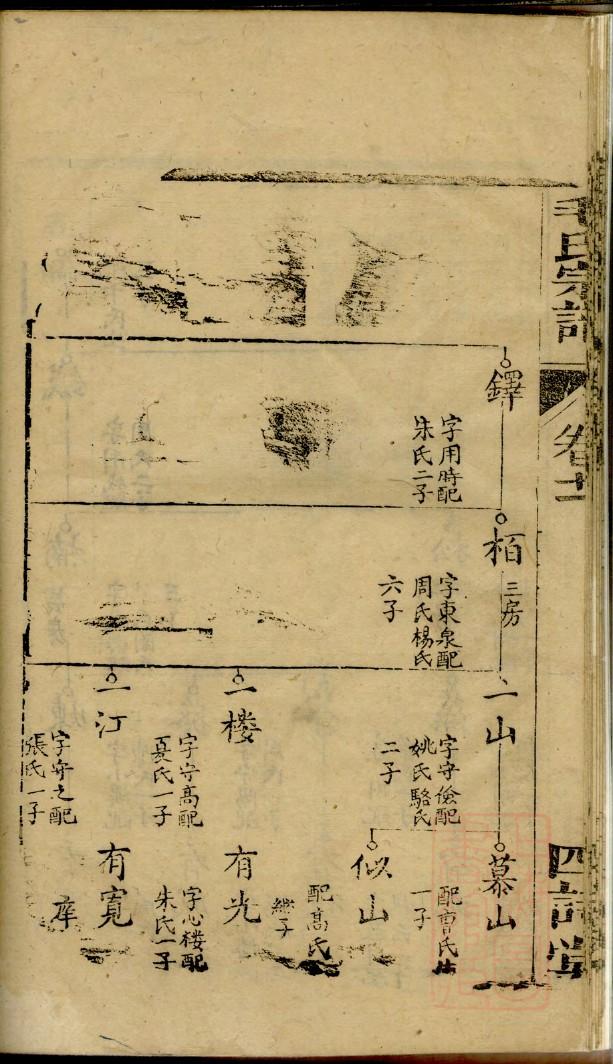 毛氏宗譜
卷十一
鐸
字用時配
朱氏二子
栢
三房
字東泉配
周氏楊氏
六子
一山
字守儉配
姚氏駱氏
二子
一楼
字守高配
夏氏一子
一江
字守之配
張氏一子
慕山
配曹氏生
一子
似山
配髙氏
継子
有光
字心楼配
朱氏一子
有寛
庠